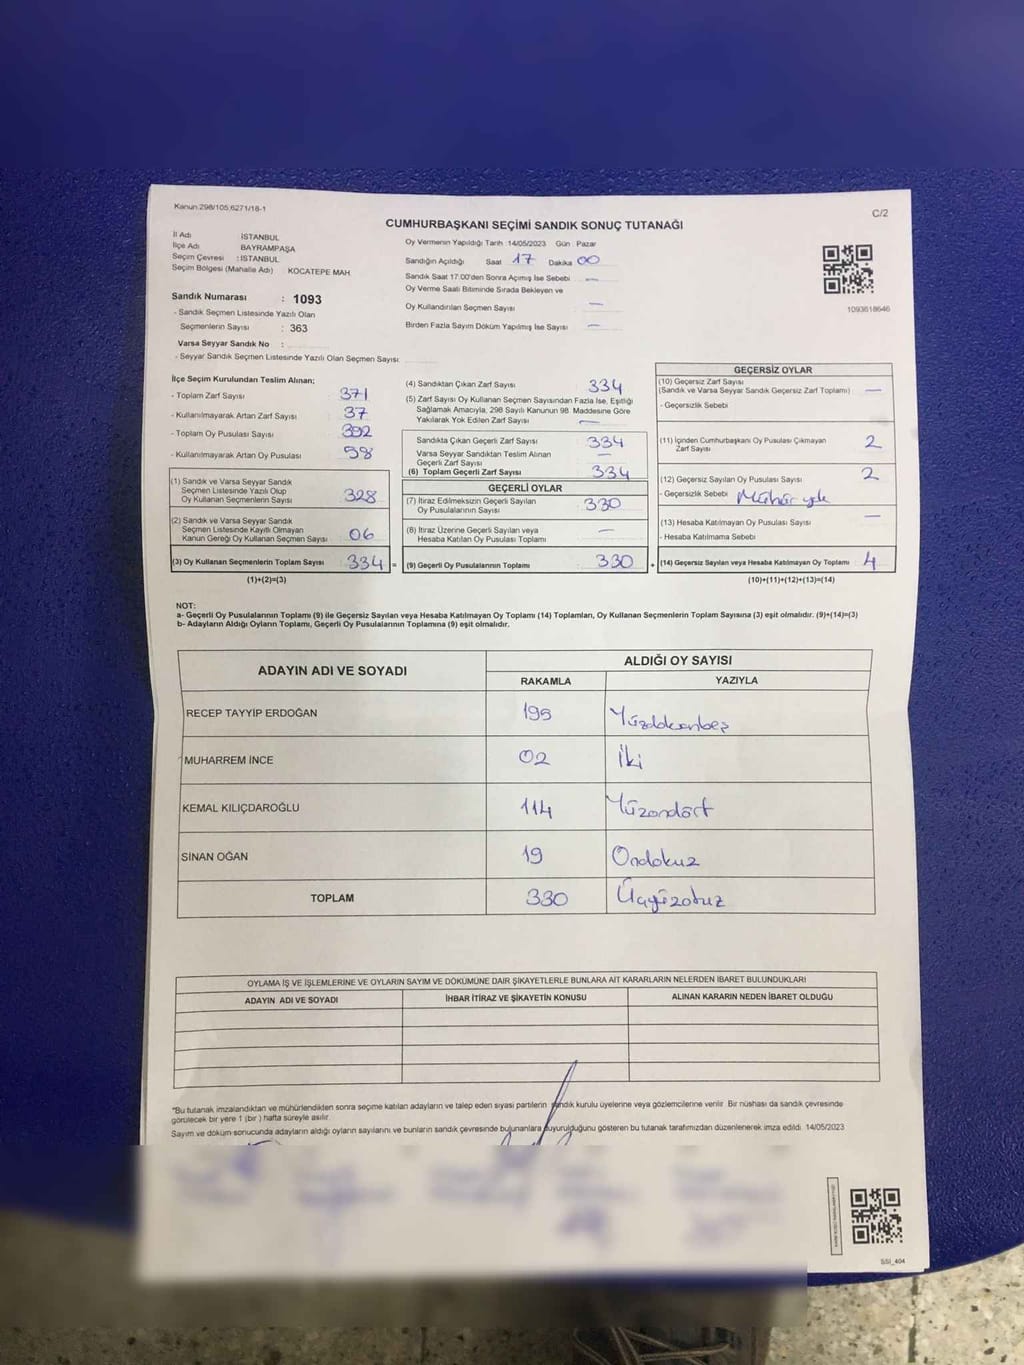 Kanun:298/105,6271/18-1
C/2
CUMHURBAŞKANI SEÇİMİ SANDIK SONUÇ TUTANAĞI
İl Adı İSTANBUL
İlçe Adı BAYRAMPAŞA
Seçim Çevresi : İSTANBUL
Seçim Bölgesi (Mahalle Adı) KOCATEPE MAH
Sandık Numarası : 1093
- Sandık Seçmen Listesinde Yazılı Olan
Seçmenlerin Sayısı : 363
Varsa Seyyar Sandık No :
- Seyyar Sandık Seçmen Listesinde Yazılı Olan Seçmen Sayısı:
Oy Vermenin Yapıldığı Tarih :14/05/2023 Gün : Pazar
Sandığın Açıldığı Saat 17 Dakika 00
Sandık Saat 17:00'den Sonra Açımış İse Sebebi —
Oy Verme Saati Bitiminde Sırada Bekleyen ve
Oy Kullandırılan Seçmen Sayısı —
Birden Fazla Sayım Döküm Yapılmış İse Sayısı —
1093618646
İlçe Seçim Kurulundan Teslim Alınan;
- Toplam Zarf Sayısı 371
- Kullanılmayarak Artan Zarf Sayısı 37
- Toplam Oy Pusulası Sayısı 392
- Kullanılmayarak Artan Oy Pusulası 58
(1) Sandık ve Varsa Seyyar Sandık
Seçmen Listesinde Yazılı Olup
Oy Kullanan Seçmenlerin Sayısı 328
(2) Sandık ve Varsa Seyyar Sandık
Seçmen Listesinde Kayıtlı Olmayan
Kanun Gereği Oy Kullanan Seçmen Sayısı 06
(3) Oy Kullanan Seçmenlerin Toplam Sayısı 334 =
(1)+(2)=(3)
(4) Sandıktan Çıkan Zarf Sayısı 334
(5) Zarf Sayısı Oy Kullanan Seçmen Sayısından Fazla İse, Eşitliği
Sağlamak Amacıyla, 298 Sayılı Kanunun 98. Maddesine Göre
Yakılarak Yok Edilen Zarf Sayısı —
Sandıkta Çıkan Geçerli Zarf Sayısı 334
Varsa Seyyar Sandıktan Teslim Alınan
Geçerli Zarf Sayısı —
(6) Toplam Geçerli Zarf Sayısı 334
GEÇERLİ OYLAR
(7) İtiraz Edilmeksizin Geçerli Sayılan
Oy Pusulalarının Sayısı 330
(8) İtiraz Üzerine Geçerli Sayılan veya
Hesaba Katılan Oy Pusulası Toplamı —
(9) Geçerli Oy Pusulalarının Toplamı 330 +
GEÇERSİZ OYLAR
(10) Geçersiz Zarf Sayısı
(Sandık ve Varsa Seyyar Sandık Geçersiz Zarf Toplamı) —
- Geçersizlik Sebebi
(11) İçinden Cumhurbaşkanı Oy Pusulası Çıkmayan
Zarf Sayısı 2
(12) Geçersiz Sayılan Oy Pusulası Sayısı 2
- Geçersizlik Sebebi
(13) Hesaba Katılmayan Oy Pusulası Sayısı —
- Hesaba Katılmama Sebebi
(14) Geçersiz Sayılan veya Hesaba Katılmayan Oy Toplamı 4
(10)+(11)+(12)+(13)=(14)
NOT:
a- Geçerli Oy Pusulalarının Toplamı (9) ile Geçersiz Sayılan veya Hesaba Katılmayan Oy Toplamı (14) Toplamları, Oy Kullanan Seçmenlerin Toplam Sayısına (3) eşit olmalıdır. (9)+(14)=(3)
b- Adayların Aldığı Oyların Toplamı, Geçerli Oy Pusulalarının Toplamına (9) eşit olmalıdır.
ADAYIN ADI VE SOYADI ALDIĞI OY SAYISI
RAKAMLA YAZIYLA
RECEP TAYYİP ERDOĞAN 195
MUHARREM İNCE 02 İki
KEMAL KILIÇDAROĞLU 114 Yüzondört
SİNAN OĞAN 19 Ondokuz
TOPLAM 330 Üçyüzotuz
OYLAMA İŞ VE İŞLEMLERİNE VE OYLARIN SAYIM VE DÖKÜMÜNE DAİR ŞİKAYETLERLE BUNLARA AİT KARARLARIN NELERDEN İBARET BULUNDUKLARI
ADAYIN ADI VE SOYADI İHBAR İTİRAZ VE ŞİKAYETİN KONUSU ALINAN KARARIN NEDEN İBARET OLDUĞU
*Bu tutanak imzalandıktan ve mühürlendikten sonra seçime katılan adayların ve talep eden siyasi partilerin sandık kurulu üyelerine veya gözlemcilerine verilir. Bir nüshası da sandık çevresinde
görülecek bir yere 1 (bir ) hafta süreyle asılır.
Sayım ve döküm sonucunda adayların aldığı oyların sayılarını ve bunların sandık çevresinde bulunanlara duyurulduğunu gösteren bu tutanak tarafımızdan düzenlenerek imza edildi. 14/05/2023
SSI_404